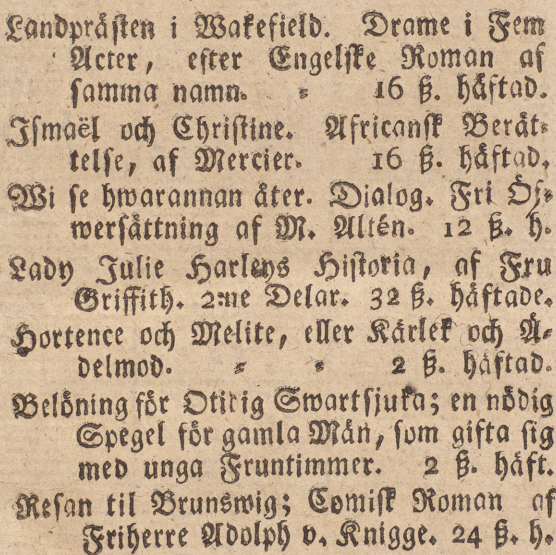 Landprästen i Wakefield. Drame i Fem
Acter, efter Engelske Roman af
samma namn. = 16 ß. häftad.
Ismaël och Christine. Africansk Berät=
telse, af Mercier. 16 ß. häftad.
Wi se hwarannan åter. Dialog. Fri Öf=
wersättning af M. Altén. 12 ß. h.
Lady Julie Harleys Historia, af Fru
Griffith. 2:ne Delar. 32 ß. häftade.
Hortence och Melite, eller Kärlek och Ä=
delmod. = = 2 ß. häftad.
Belöning för Otidig Swartsjuka; en nödig
Spegel för gamla Män, som gifta sig
med unga Fruntimmer. 2 ß. häft.
Resan til Brunswig; Comisk Roman af
Friherre Adolph v. Knigge. 24 ß. h.